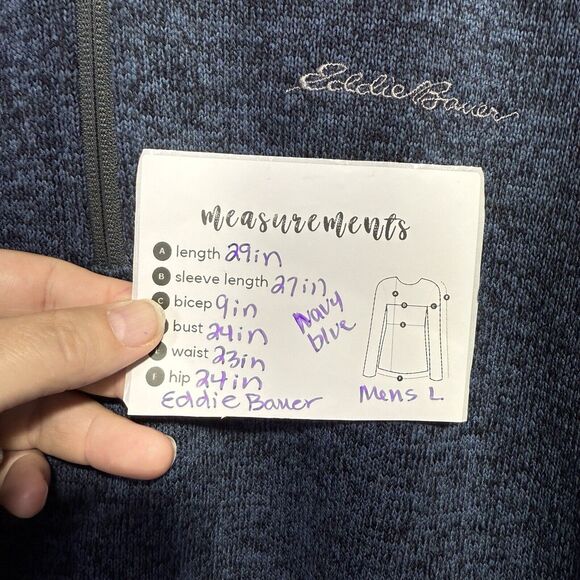 Eddie Bauer
measurements
A length 29in
B sleeve length 27in
C bicep 9in
bust 24in
E waist 23in
F hip 24in
Navy
blue
Eddie Bauer
Mens L.